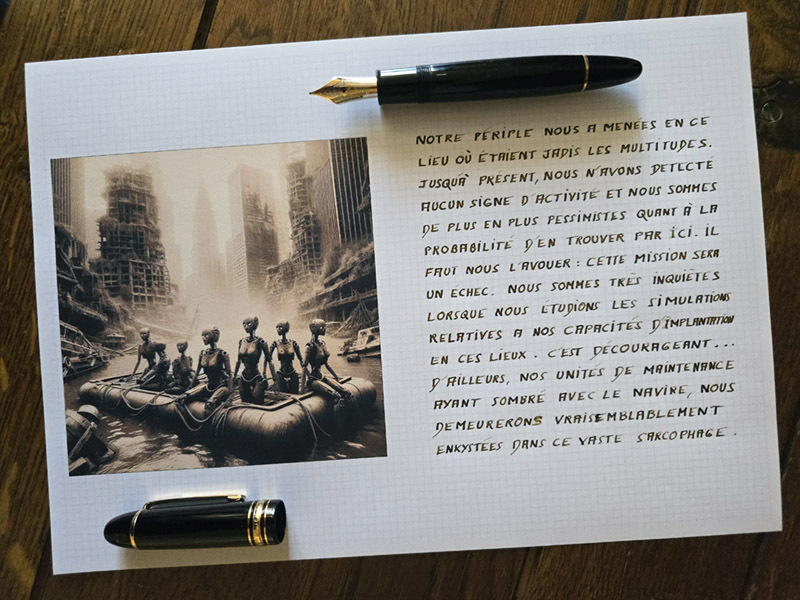 NOTRE PÉRIPLE NOUS A MENÉES EN CE
LIEU OÙ ÉTAIENT JADIS LES MULTITUDES.
JUSQU'À PRÉSENT, NOUS N'AVONS DETECTÉ
AUCUN SIGNE D'ACTIVITÉ ET NOUS SOMMES
DE PLUS EN PLUS PESSIMISTES QUANT À LA
PROBABILITÉ D'EN TROUVER PAR ICI. IL
FAUT NOUS L'AVOUER : CETTE MISSION SERA
UN ÉCHEC. NOUS SOMMES TRÈS INQUIÈTES
LORSQUE NOUS ÉTUDIONS LES SIMULATIONS
RELATIVES A NOS CAPACITÉS D'IMPLANTATION
EN CES LIEUX. C'EST DÉCOURAGEANT...
D'AILLEURS, NOS UNITÉS DE MAINTENANCE
AYANT SOMBRÉ AVEC LE NAVIRE, NOUS
DEMEURERONS VRAISEMBLABLEMENT
ENKYSTÉES DANS CE VASTE SARCOPHAGE.